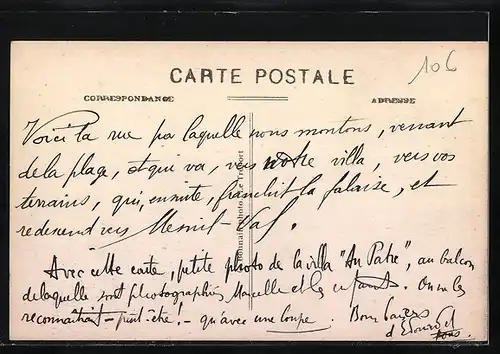 106
CARTE POSTALE
CORRESPONDANCE
ADRESSE
Voici la rue par laquelle nous montons, venant
de la plage, et qui va, vers notre villa, vers vos
terrains, qui, ensuite, franchit la falaise, et
redescend vers Mesnil-Val.
Avec cette carte, petite photo de la villa "Au Patre", au balcon
de laquelle sont photographiés Marcelle et les enfants. On ne les
reconnaitrait - peut-être! - qu'avec une loupe. Bons baisers
d'Edouard et
photo. Le Tréport